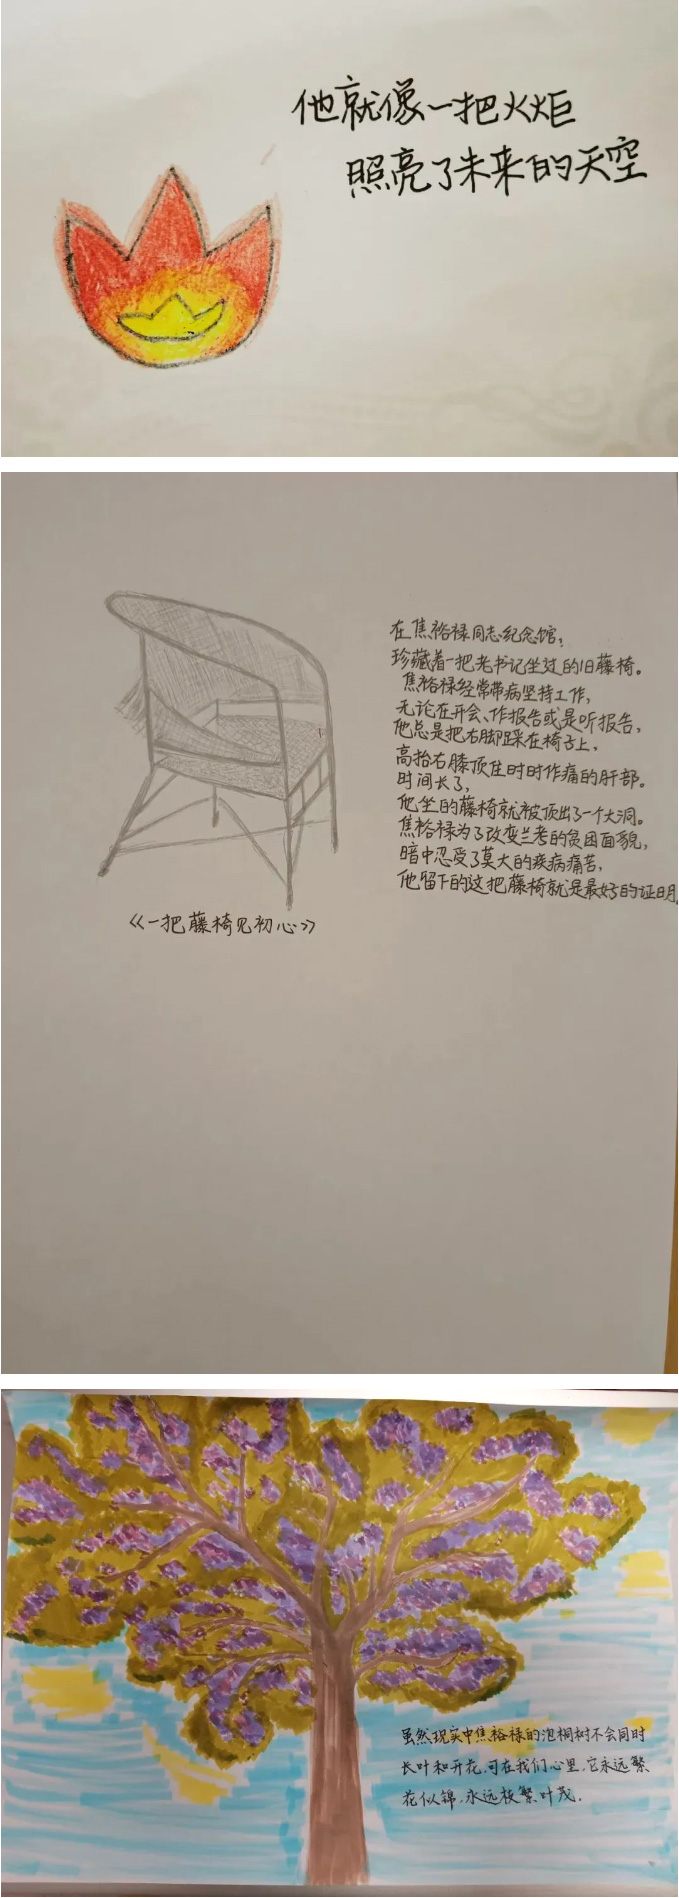 他就像一把火炬
照亮了未来的天空
在焦裕禄同志纪念馆，
珍藏着一把老书记坐过的旧藤椅。
焦裕禄经常带病坚持工作，
无论在开会、作报告或是听报告，
他总是把右脚踩在椅子上，
高抬右膝顶住时时作痛的肝部。
时间长了，
他坐的藤椅就被顶出了一个大洞。
焦裕禄为了改变兰考的贫困面貌，
暗中忍受了莫大的疾病痛苦，
他留下的这把藤椅就是最好的证明。
《一把藤椅见初心》
虽然现实中焦裕禄的泡桐树不会同时
长叶和开花，可在我们心里，它永远繁
花似锦，永远枝繁叶茂。